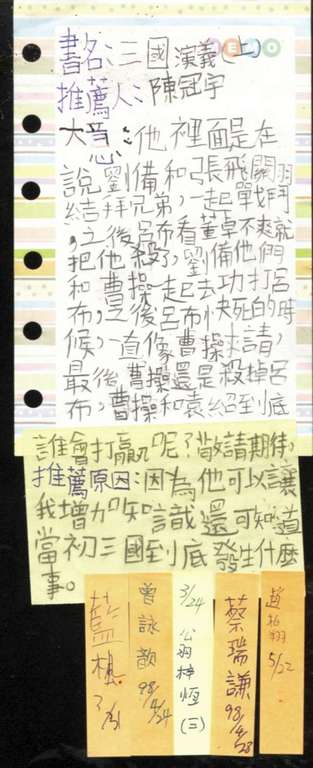 書名:三國演義(上)
MEMO
推薦人:陳冠宇
大意:他裡面是在
說劉備和張飛關羽
結拜兄弟,一起戰鬥
,之後呂布看董卓不爽就
把他殺了,劉備他們
和曹操一起去攻打呂
布,之後呂布快死的時
候,一直像曹操求請,
最後曹操還是殺掉呂
布,曹操和袁紹到底
誰會打贏呢?敬請期待,
推薦原因:因為他可以讓
我增加知識還可知道
當初三國到底發生什麼
事。
藍楓
曾詠歆 98/4/24
3/24 公翁梓恆(三)
蔡瑞謙 98/4/28
趙 翔 5/22